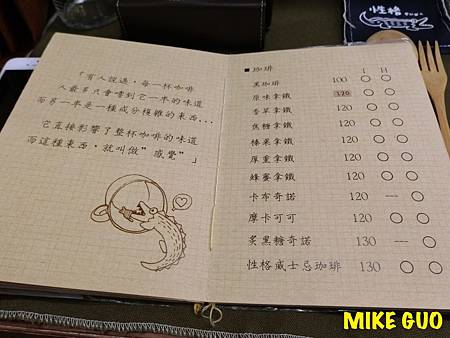 「有人說過，每一杯咖啡
人最多只會嚐到它一半的味道
而另一半是一種成分複雜的東西...
它直接影響了整杯咖啡的味道
而這種東西，就叫做"感覺"」
■ 咖啡 I H
黑咖啡 100 ○ ○
原味拿鐵 120 ○ ○
香草拿鐵 120 ○ ○
焦糖拿鐵 120 ○ ○
榛果拿鐵 120 ○ ○
厚重拿鐵 120 ○ ○
蜂蜜拿鐵 120 ○ ○
卡布奇諾 120 — ○
摩卡可可 120 ○ ○
炙黑糖奇諾 130 — ○
性格威士忌珈琲 130 ○ ○
性格
MIKE GUO